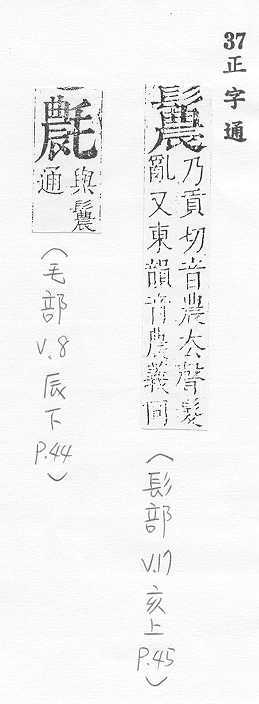 37 正字通
鬞乃貢切音農去聲髮
亂又東韻音農義同
(髟部 V.17 亥上 P.45)
氎與鬞
通
(毛部 V.8 辰下 P.44)